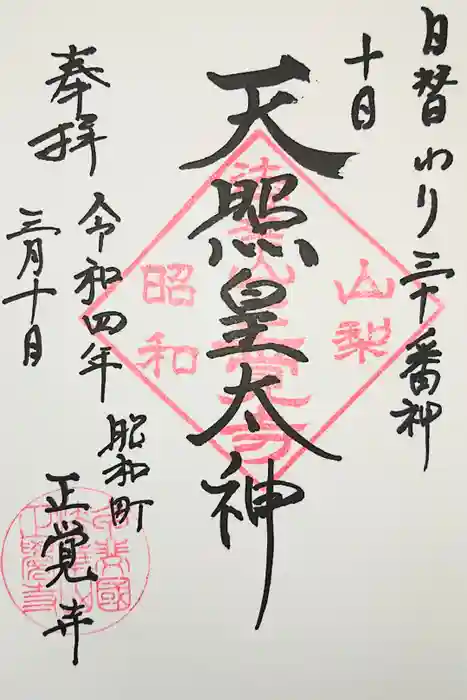 日替わり三十番神
十日
天照皇太神
奉拝
令和四年
三月十日
昭和町
正覚寺
山梨
昭和